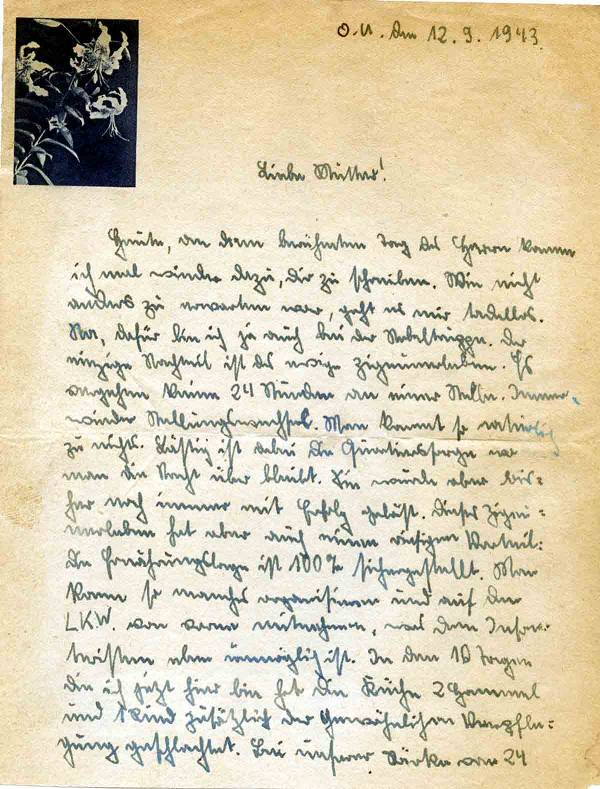 O.U. den 12.9.1943.
Liebe Mutter!
Heute, an dem berühmten Tag des Herrn komme
ich mal wieder dazu, dir zu schreiben. Wie nicht
anders zu erwarten war, geht es mir tadellos.
Na, dafür bin ich ja auch bei der Nebeltruppe. Der
einzige Nachteil ist das ewige Zigeunerleben. Es
vergehen keine 24 Stunden an einer Stelle. Immer
wieder Stellungswechsel. Man kommt so natürlich
zu nichts. Lustig ist dabei die Quartiersorge wo
man die Nacht über bleibt. Sie wurde aber bis=
her noch immer mit Erfolg gelöst. Dieses Zigeu=
nerleben hat aber auch einen riesigen Vorteil:
Die Ernährungslage ist 100% sichergestellt. Man
kann so manches organisieren und auf den
LKW. von vorne mitnehmen, was dem Infan=
teristen eben unmöglich ist. In den 10 Tagen
die ich jetzt hier bin hat die Küche 2 Hammel
und 1 Rind zusätzlich der gewöhnlichen Verpfle=
gung geschlachtet. Bei unserer Stärke von 24